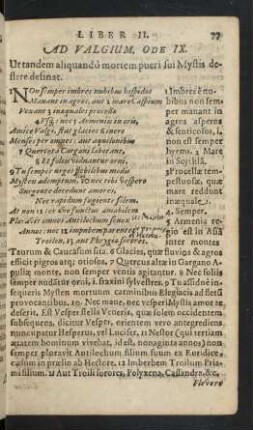 LIBER II. 77
AD VALGIUM, ODE IX.
Ut tandem aliquandò mortem pueri sui Mystis de-
flere desinat.
NOn semper imbres nubibus hispidos
Manant in agros, aut 2 mare Caspium
Vexant 3 inæquales procellæ
4 Usq; nec 5 Armeniis in oris,
Amice Valgi, stat glacies 6 iners
Menses per omnes: aut aquilonibus
7 Querceta Gargani laborant,
Et foliis viduantur orni.
Tu semper urges flebilibus modis
Mysten ademptum, nec tibi vespero
Surgente decedunt amores,
Nec rapidum fugiente solem.
At non ter ævo functus amabilem
Ploravit omnes Antilochum senex
Annos: nec 12 impubem parentes
Troilon, 13 aut Phrygiæ sorores.
1 Imbres è nu-
bibus non sem-
per manant in
agros asperos
& senticosos, i,
non est semper
hyems. 2 Mare
3 Procellæ tem-
pestas
quæ reddunt
inæquale.
4 Semper.
5 Armenia re-
gio est in Asia
inter montes
Taurum & Caucasum sita. 6 Glacies, quæ fluvios & agros
efficit pigros atq; otiosos. 7 Quercus altæ in Gargano A-
puliæ monte, non semper ventis agitantur. 8 Nec foliis
semper nudātur orni, i. fraxini sylvestres. 9 Tu assiduè in-
sequeris Mystem mortuum carminibus Elegiacis, ad fletū
provocantibus. 10. Nec mane, nec vesperi Mystis amor te
deserit. Est Vesper stella Veneris, quæ solem occidentem
subsequens, dicitur Vesper, orientem vero antegrediens
nuncupatur Hesperus, vel Lucifer. 11 Nestor (qui tertiam
ætatem hominum vivebat, id est, nonaginta annos) non
semper ploravit Antilochum filium suum ex Euridice,
cæsum in prælio ab Hectore. 12 Imberbem Troilum Pria-
mi filium. 13 Aut Troili sorores, Polyxena, Cassandra, &c.
Flevere